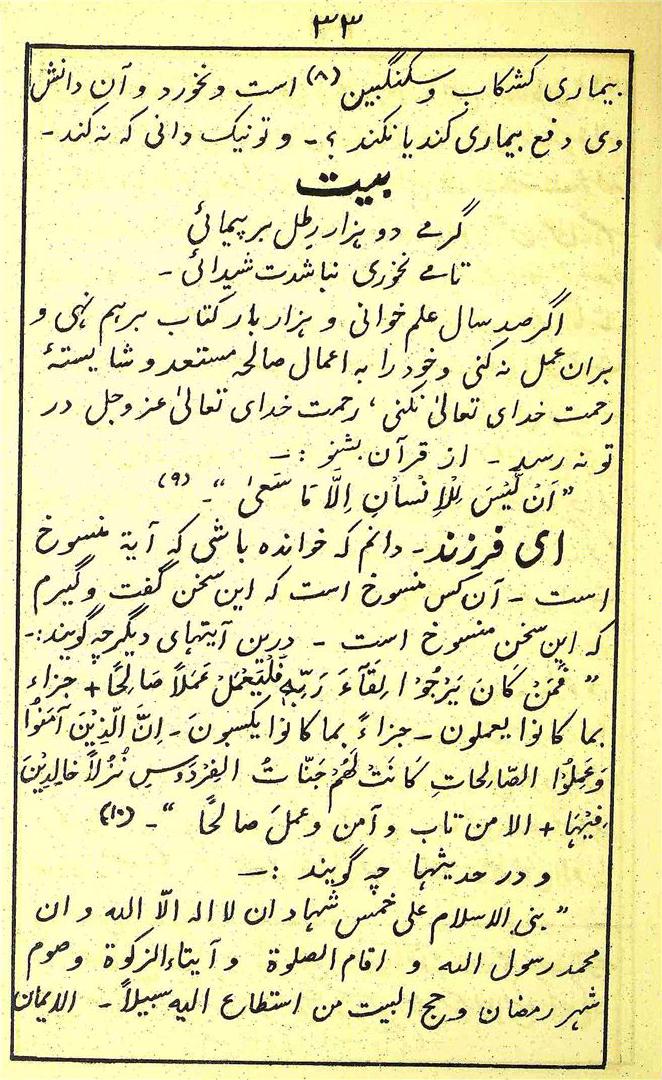 ۳۳
بیماری کشکاب و سکنگبین (۸) است ونخورد و آن دانش
وی دفع بیماری کند یا نکند ؟۔ و تو نیک دانی که نه کند۔
بیت
گرمے دو هزار رطل بر پیمائی
تامے نخوری نباشدت شیدائی۔
اگر صد سال علم خوانی و هزار بار کتاب برهم نهی و
بران عمل نه کنی و خود را به اعمال صالحه مستعد و شایستهٔ
رحمت خدای تعالیٰ نکنی، رحمت خدای تعالیٰ عز وجل در
تو نه رسد ۔ از قرآن بشنو :—
"اَنْ لَّيْسَ لِلْاِنْسَانِ اِلَّا مَا سَعٰی"۔ (۹)
ای فرزند۔ دانم که خوانده باشی که آیة منسوخ
است ۔ آن کس منسوخ است که این سخن گفت و گیرم
که این سخن منسوخ است ۔ درین آیتهای دیگر چه گویند:۔
"فَمَنْ كَانَ يَرْجُوْا لِقَآءَ رَبِّهٖ فَلْيَعْمَلْ عَمَلاً صَالِحًا + جزاء
بما كانوا يعملون ۔ جزاءً بما كانوا يكسبونَ ۔ اِنَّ الَّذِيْنَ آمَنُوْا
وَعَمِلُوْا الصَّالِحَاتِ كَانَتْ لَهُمْ جَنّاتُ الفِرْدَوْسِ نُزُلاً خَالِدِيْنَ
فِيْهَا + الا من تاب و آمن وعملَ صالحًا"۔ (۱۰)
و در حدیثها چه گویند :—
"بنی الاسلام علی خمس شهاد ان لا اله الّا الله و ان
محمد رسول الله و اقام الصلوة و آیتاء الزکوة وصوم
شهر رمضان و حج البیت من استطاع الیه سبیلاً ۔ الایمان